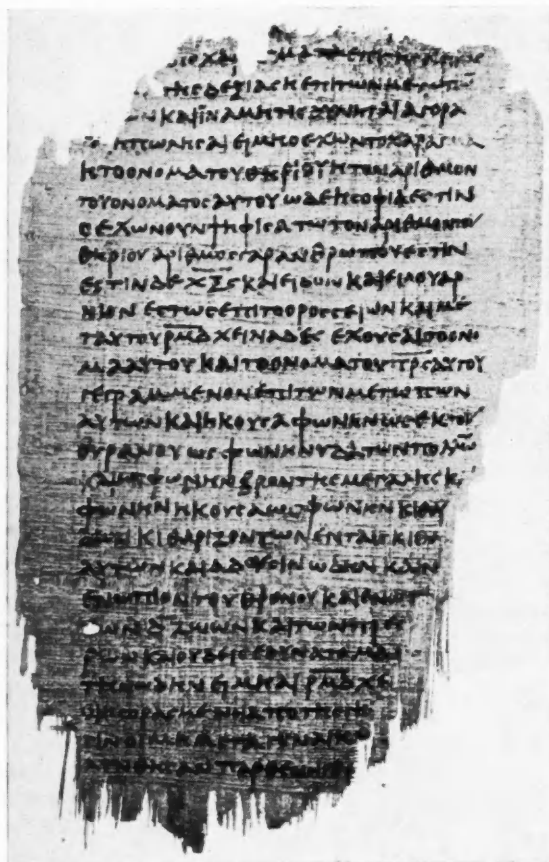 ΧΑΡ ΜΑΤΑ ΕΠΙ ΤΗϹ ΧΕΙΡΟϹ
ΤΗϹ ΔΕΞΙΑϹ Η ΕΠΙ ΤΩΝ ΜΕΤΩΠΩ̅
ΩΝ ΚΑΙ ΙΝΑ ΜΗ ΤΙϹ ΔΥΝΗΤΑΙ ΑΓΟΡΑ
Η ΠΩΛΗϹΑΙ ΕΙ ΜΗ Ο ΕΧΩΝ ΤΟ ΧΑΡΑΓΜΑ
Η ΤΟ ΟΝΟΜΑ ΤΟΥ ΘΗΡΙΟΥ Η ΤΟΝ ΑΡΙΘΜΟΝ
ΤΟΥ ΟΝΟΜΑΤΟϹ ΑΥΤΟΥ ΩΔΕ Η ϹΟΦΙΑ ΕϹΤΙΝ
Ο ΕΧΩΝ ΟΥΝ ΨΗΦΙϹΑΤΩ ΤΟΝ ΑΡΙΘΜΟΝ ΤΟΥ
ΘΗΡΙΟΥ ΑΡΙΘΜΟϹ ΓΑΡ ΑΝΘΡΩΠΟΥ ΕϹΤΙΝ
ΕϹΤΙΝ ΔΕ Χ̅Ξ̅Ϛ̅ ΚΑΙ ΕΙΔΟΝ ΚΑΙ ΕΙΔΟΥ ΑΡ
ΝΙΟΝ ΕϹΤΩϹ ΕΠΙ ΤΟ ΟΡΟϹ ϹΕΙΩΝ ΚΑΙ ΜΕ
Τ ΑΥΤΟΥ Ρ̅Μ̅Δ̅ ΧΕΙΛΙΑΔΕϹ ΕΧΟΥϹΑΙ ΤΟ ΟΝΟ
ΜΑ ΑΥΤΟΥ ΚΑΙ ΤΟ ΟΝΟΜΑ ΤΟΥ Π̅Ρ̅Ϲ̅ ΑΥΤΟΥ
ΓΕΓΡΑΜΜΕΝΟΝ ΕΠΙ ΤΩΝ ΜΕΤΩΠΩΝ
ΑΥΤΩΝ ΚΑΙ ΗΚΟΥϹΑ ΦΩΝΗΝ ΩϹ ΕΚ ΤΟΥ
ΟΥΡΑΝΟΥ ΩϹ ΦΩΝΗΝ ΥΔΑΤΩΝ ΠΟΛΛΩ̅
ΦΩΝΗΝ ΒΡΟΝΤΗϹ ΜΕΓΑΛΗϹ Κ
ΦΩΝΗΝ ΗΚΟΥϹΑ ΩϹ ΦΩΝΗΝ ΚΙΘΑ
ΚΙΘΑΡΙΖΟΝΤΩΝ ΕΝ ΤΑΙϹ ΚΙΘΑ
ΑΥΤΩΝ ΚΑΙ ΑΔΟΥϹΙΝ ΩΔΗΝ ΚΑΙΝ
ΕΝΩΠΙΟΝ ΤΟΥ ΘΡΟΝΟΥ ΚΑΙ ΕΝΩΠ
ΤΩΝ Δ̅ ΖΩΩΝ ΚΑΙ ΤΩΝ ΠΡΕϹ
ΡΩΝ ΚΑΙ ΟΥΔΕΙϹ ΕΔΥΝΑΤΟ ΜΑΘ
ΤΗΝ ΩΔΗΝ ΕΙ ΜΗ ΑΙ Ρ̅Μ̅Δ̅ ΧΕ
ΗΓΟΡΑϹΜΕΝΟΙ ΑΠΟ ΤΗϹ ΓΗϹ
ΜΕΤΑ ΓΥΝΑΙΚΩ
ΠΑΡΘΕΝΟΙ